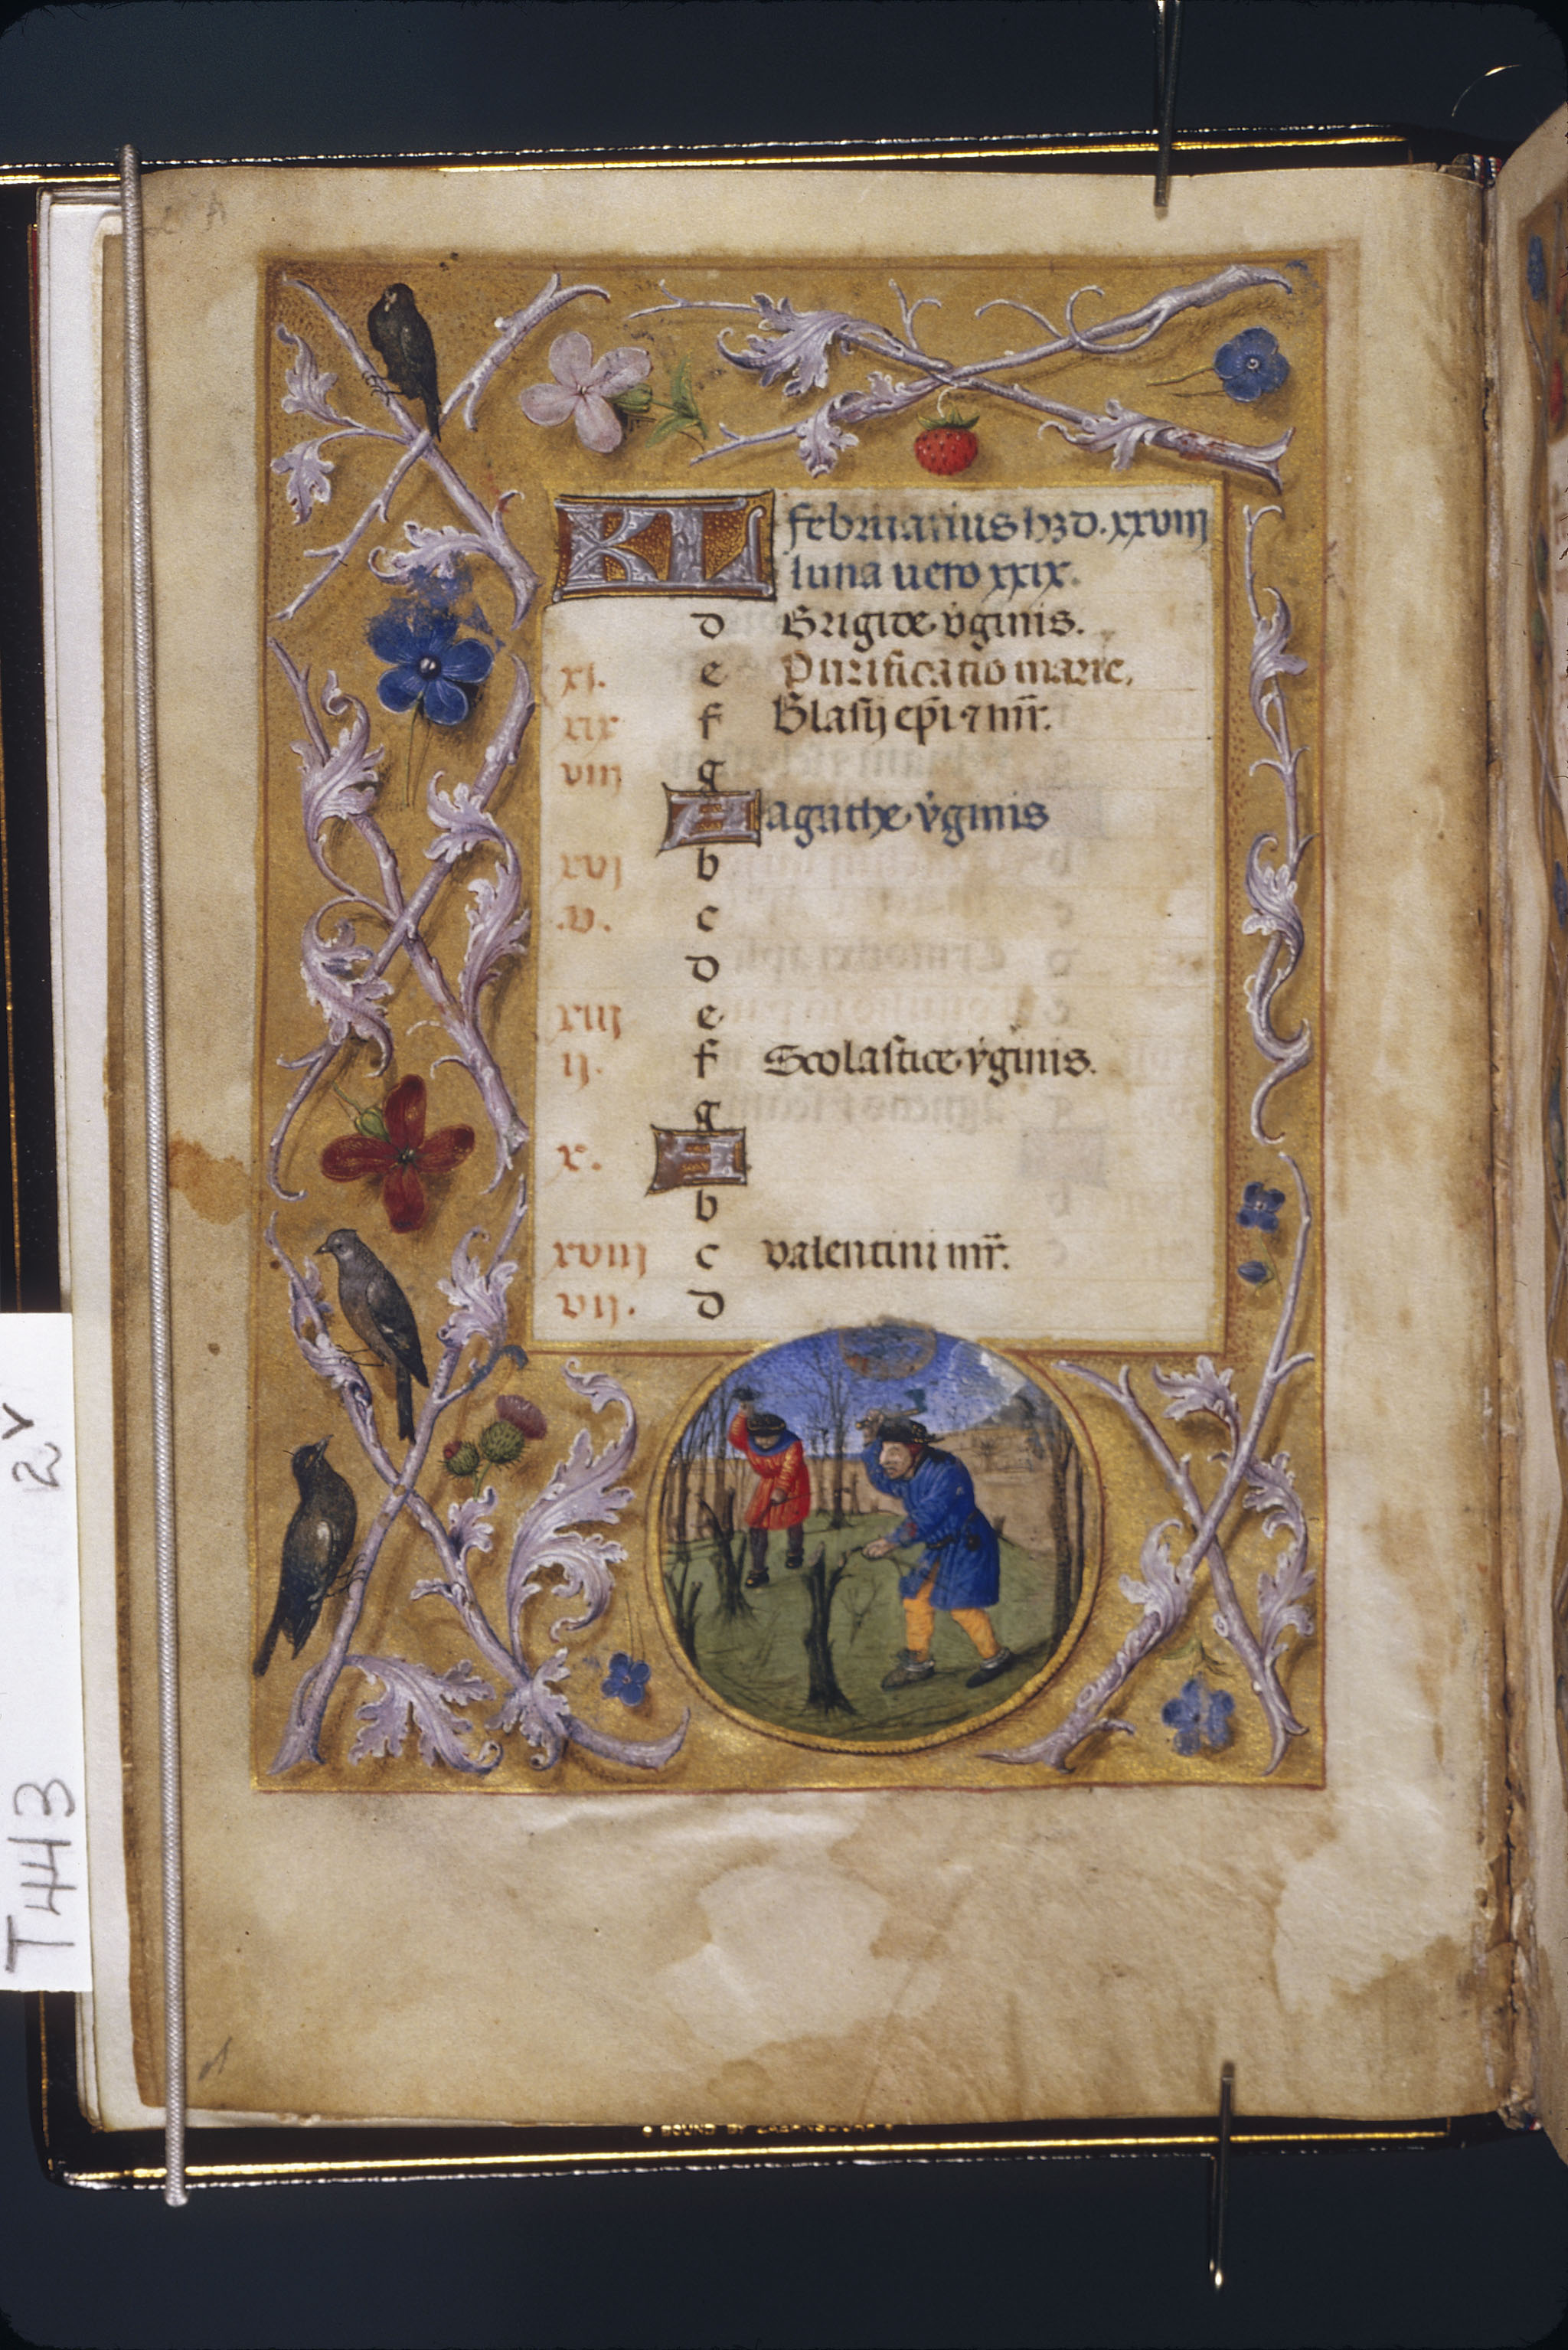 KL februarius hꝫ d. xxviij
luna vero xxix.
d Brigide v̇ginis.
xj. e Purificatio marie,
xix f Blasij ep̄i ⁊ mr̄.
viij g
A agathe v̇ginis
xvj b
.v. c
d
xiij e
ij. f Scolastice v̇ginis.
g
x. A
b
xviij c valentini mr̄.
vij. d
2v
T443